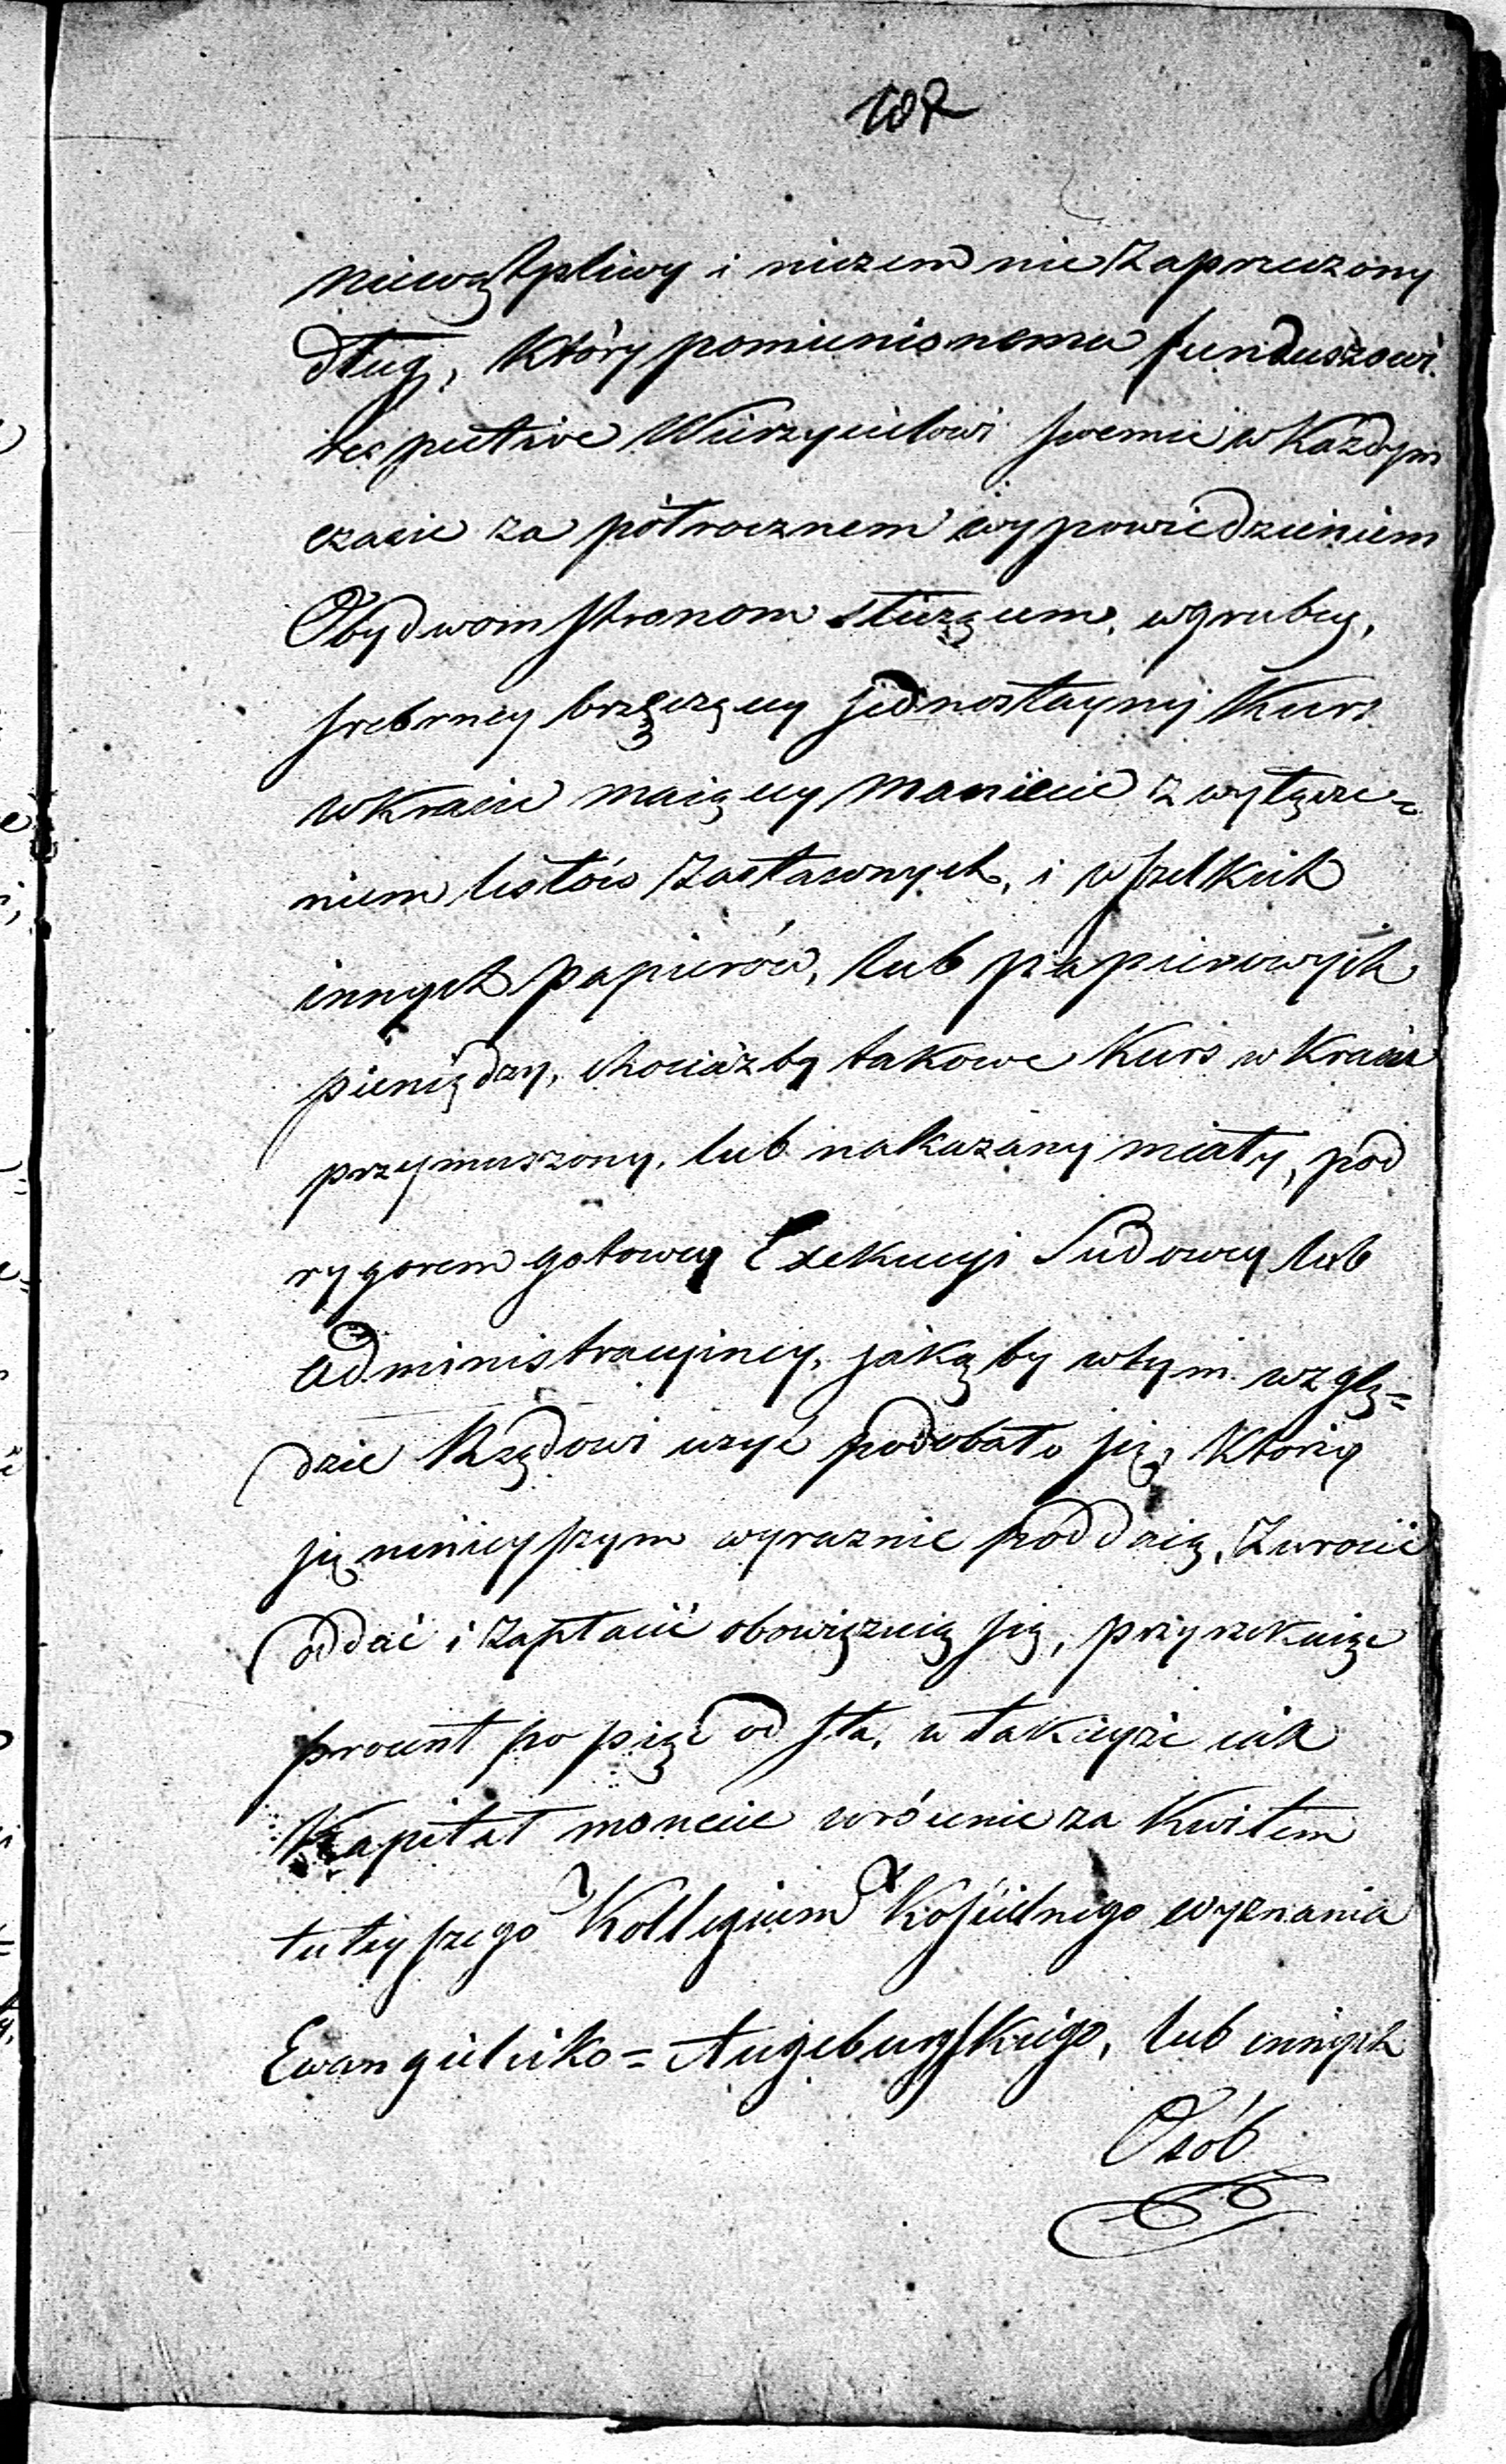 108
niewątpliwy i niczem nie zaprzeczony
dług, który pomienionemu funduszowi
respective Wierzycielowi swemu w każdym
czasie za półrocznem wypowiedzeniem
Obydwom stronom służącem, w grubey,
srebrney brzęczącey jednostayny kurs
w kraiu maiącey monecie z wyłącze=
niem listów zastawnych, i wszelkich
innych papierów, lub papierowych
pieniędzy, chociażby takowe kurs w kraiu
przymuszony, lub nakazany miały, pod
rygorem gotowey Exekucyi Sądowey lub
administracyiney, jakąby w tym wzglę=
dzie Rządowi użyć podobało się, którey
się nınieyszym wyraznie poddaią, zwrócić
oddać i zapłacić obowięzuią się, przyrzekaiąc
procent po pięć od sta, w takieyże iak
Kapitał monecie rócznie za kwitem
tuteyszego Kollegium Kościelnego wyznania
Ewangielicko=Augsburgskiego, lub innych
Osób